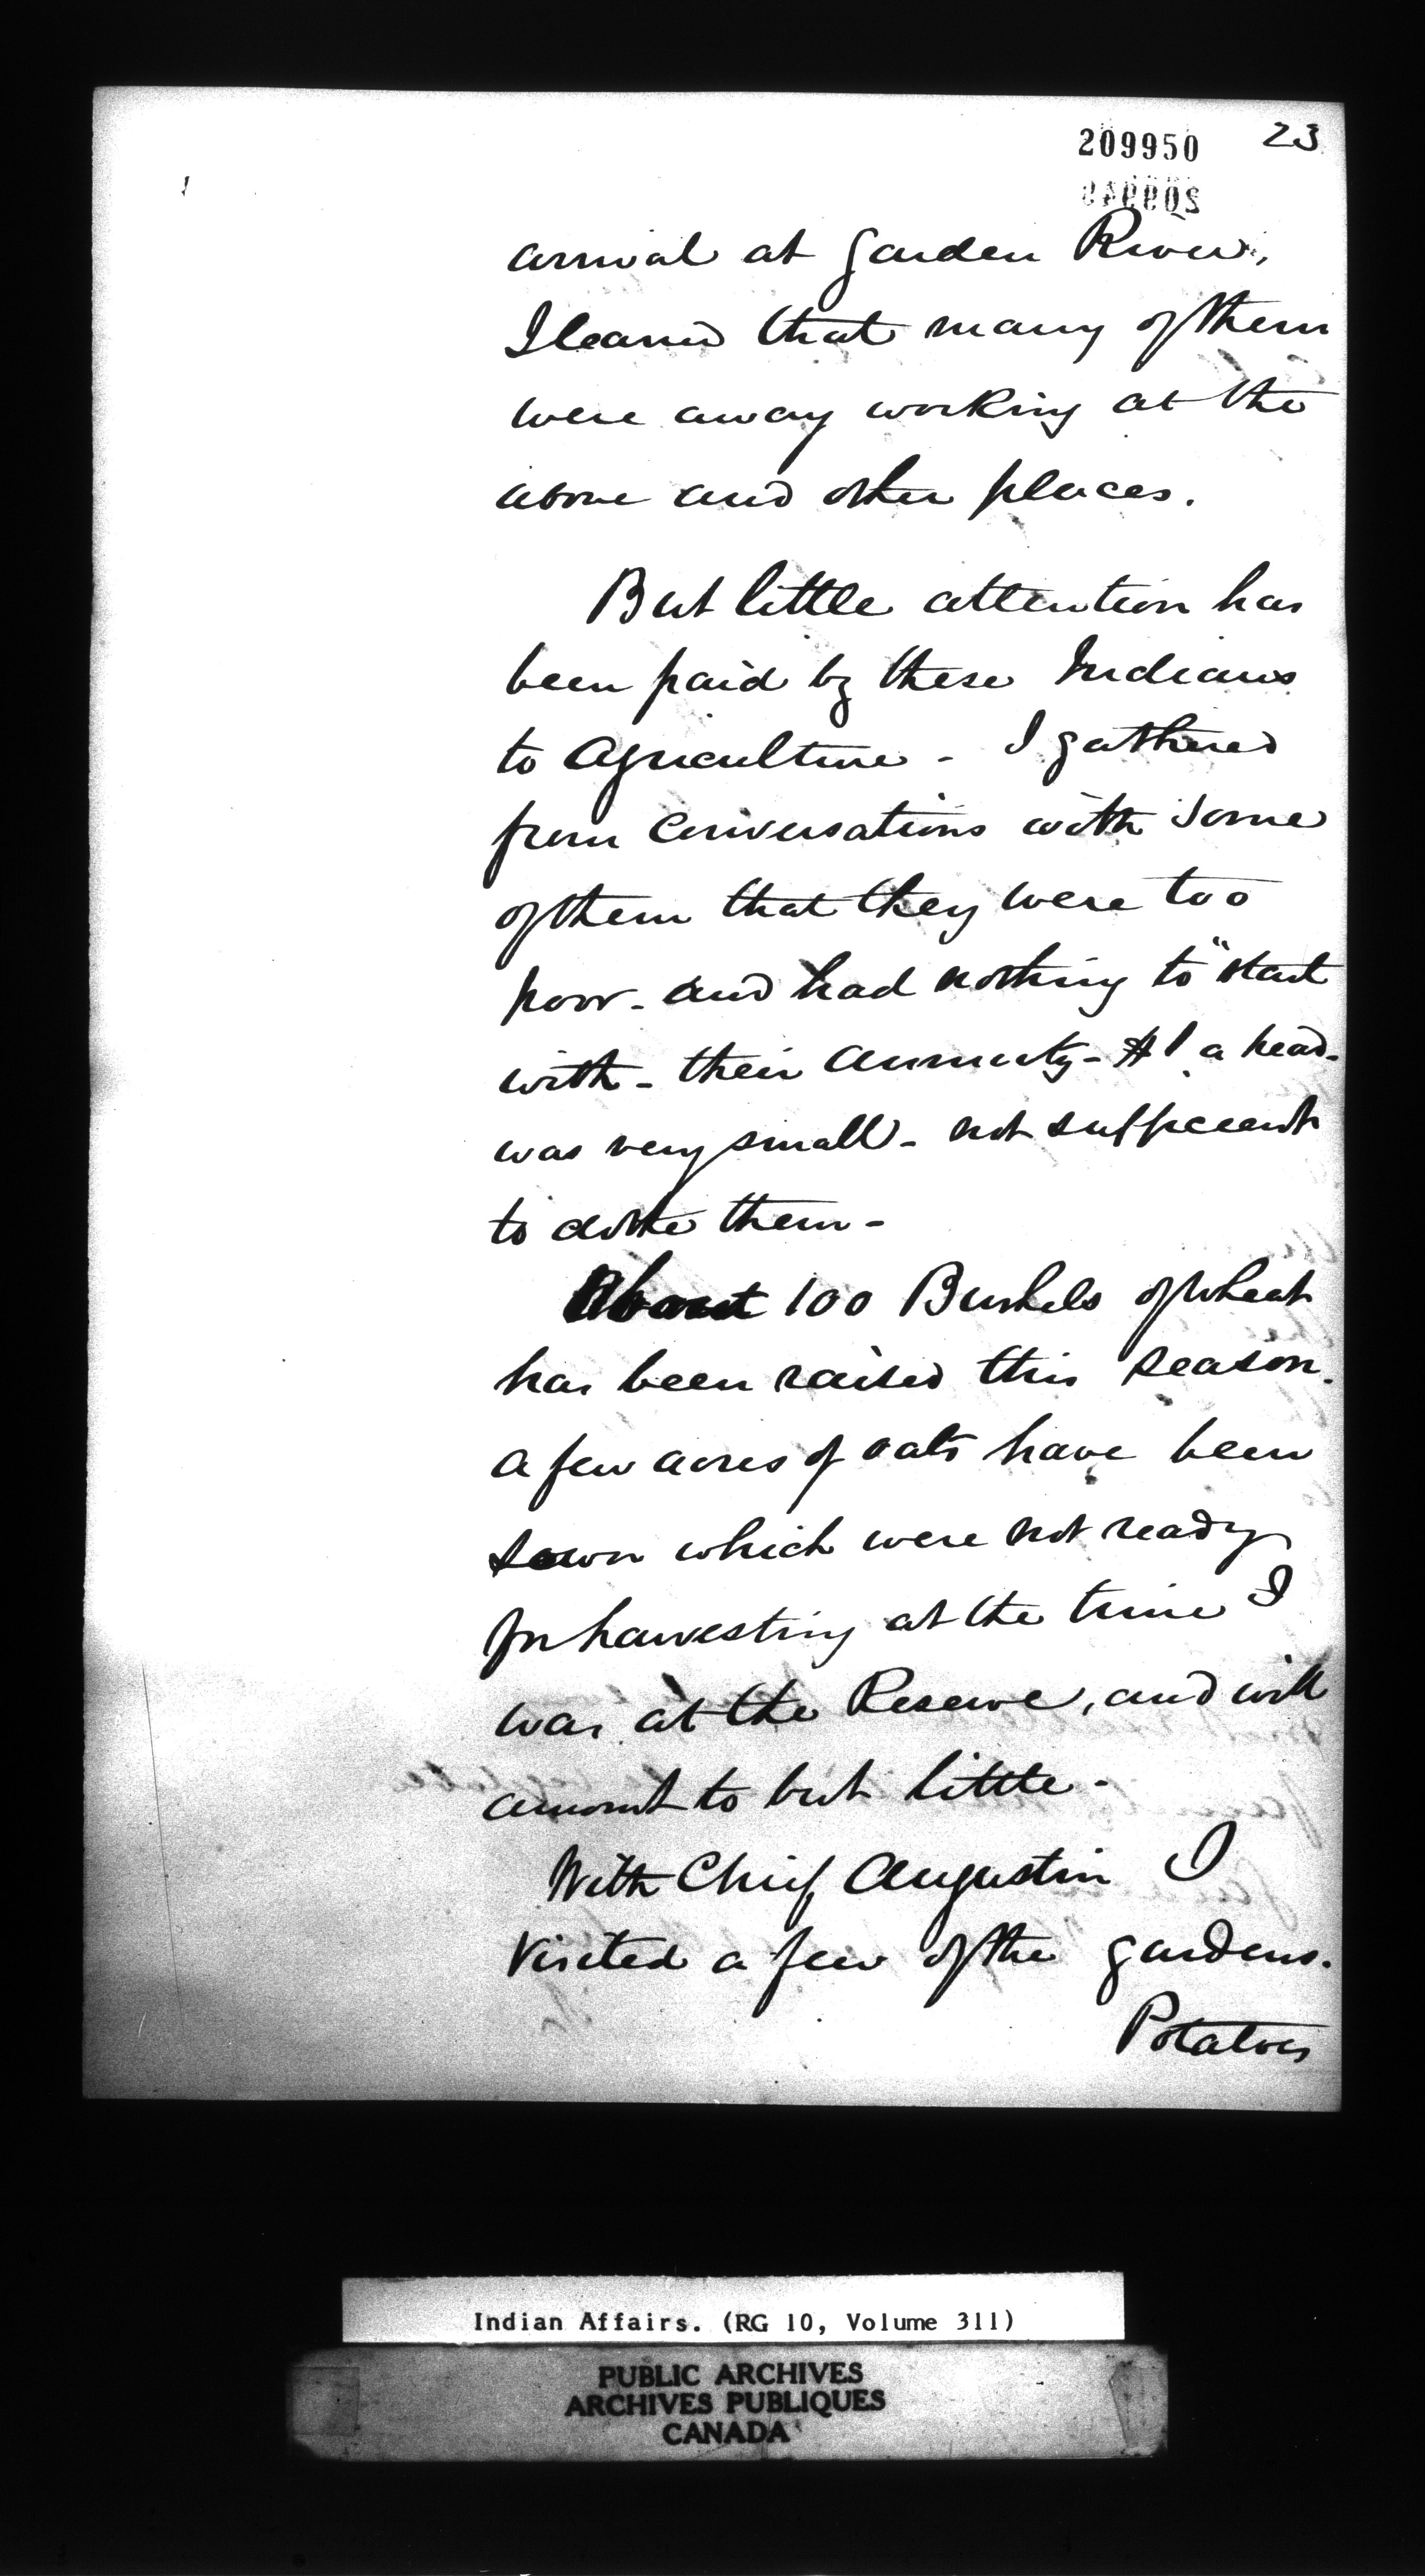 209950 23
arrival at Garden River,
I learned that many of them
were away working at the
above and other places.
But little attention has
been paid by these Indians
to Agriculture - I gathered
from conversations with some
of them that they were too
poor - and had nothing to "start
with - their annuity - $1 a head -
was very small - not sufficient
to clothe them -
About 100 Bushels of wheat
has been raised this season.
a few acres of oats have been
sown which were not ready
for harvesting at the time I
was at the Reserve, and will
amount to but little -
With Chief Augustin I
visited a few of the gardens.
Potatoes
Indian Affairs. (RG 10, Volume 311)
PUBLIC ARCHIVES
ARCHIVES PUBLIQUES
CANADA